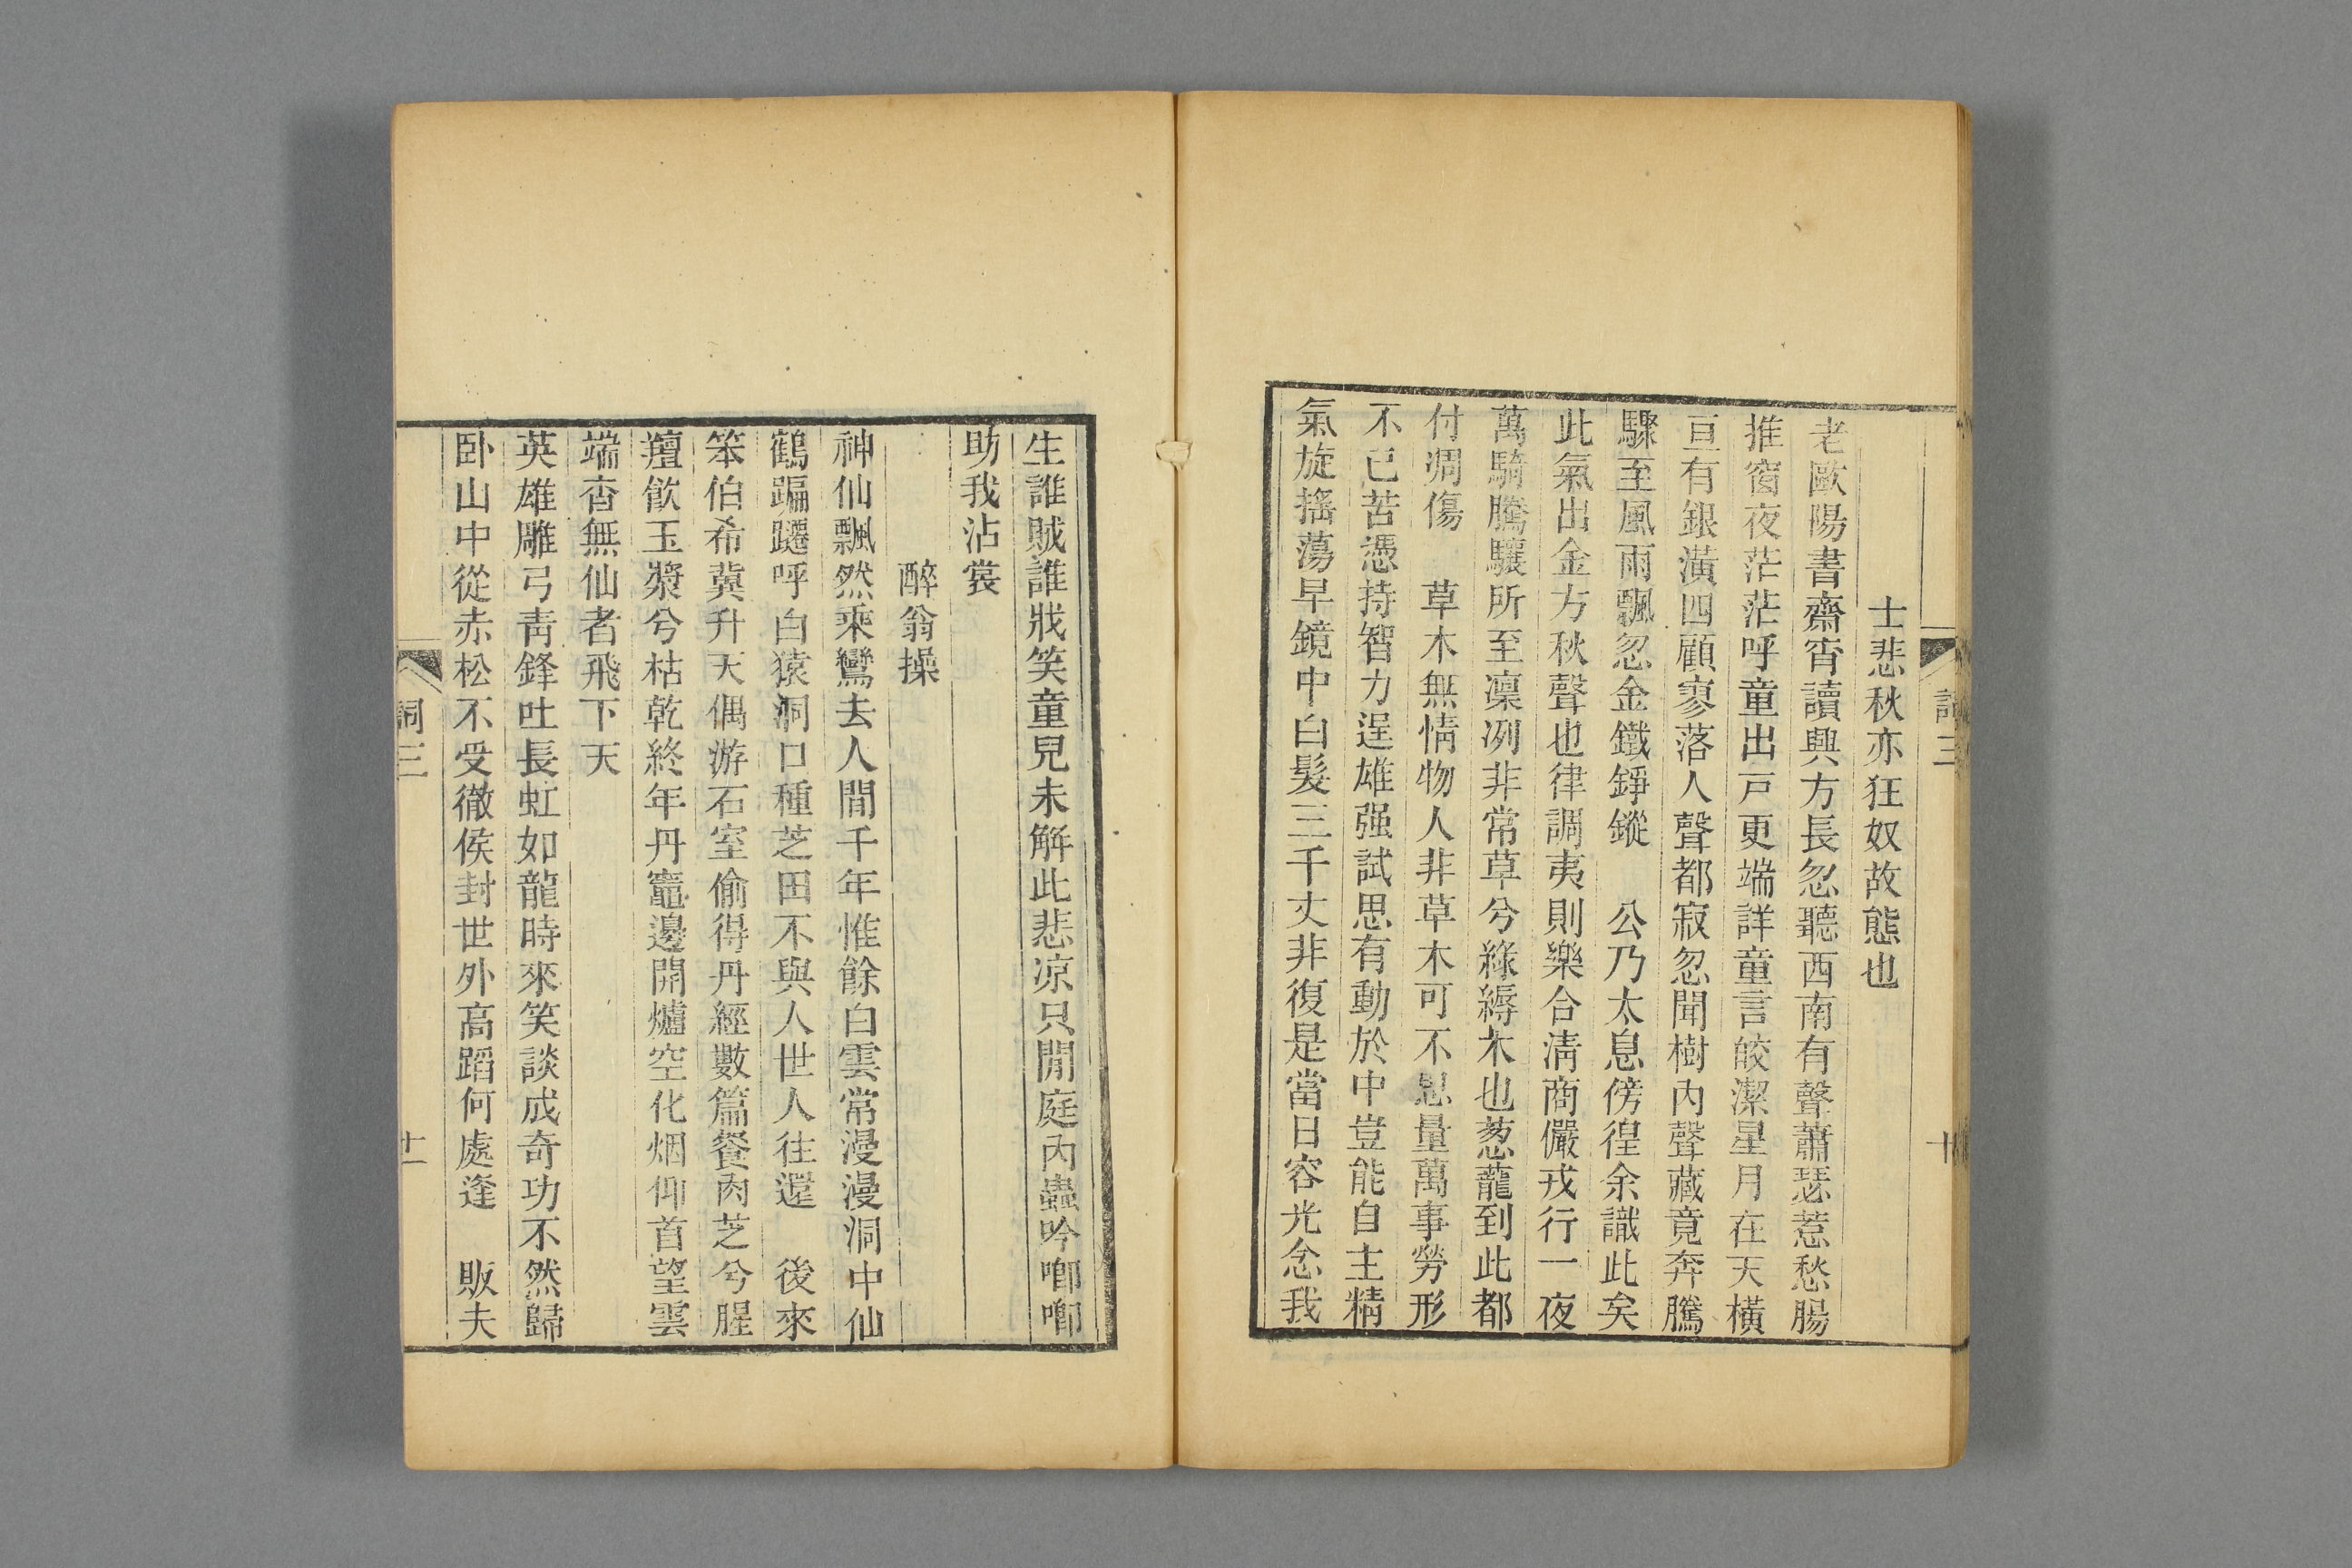 士悲秋亦狂奴故態也
老歐陽書齋宵讀興方長忽聽西南有聲蕭瑟惹愁腸
推窗夜茫茫呼童出戸更端詳童言皎潔星月在天橫
亘有銀潢四顧寥落人聲都寂忽聞樹內聲藏竟奔騰
驟至風雨飄忽金鐵錚鏦　公乃太息傍徨余識此矣
此氣出金方秋聲也律調夷則樂合淸商儼戎行一夜
萬騎騰驤所至凛冽非常草兮綠縟木也葱蘢到此都
付凋傷　草木無情物人非草木可不思量萬事勞形
不已苦憑持智力逞雄强試思有動於中豈能自主精
氣旋搖蕩早鏡中白髮三千丈非復是當日容光念我
詞三
十
生誰賊誰戕笑童兒未解此悲凉只閒庭內蟲吟喞喞
助我沾裳
醉翁操
神仙飄然乘鸞去人間千年惟餘白雲常漫漫洞中仙
鶴蹁躚呼白猿洞口種芝田不與人世人往還　後來
笨伯希冀升天偶游石室偷得丹經數篇餐肉芝兮腥
羶飲玉漿兮枯乾終年丹竈邊開爐空化烟仰首望雲
端杳無仙者飛下天
英雄雕弓靑鋒吐長虹如龍時來笑談成奇功不然歸
卧山中從赤松不受徹侯封世外高蹈何處逢　販夫
詞三
十一